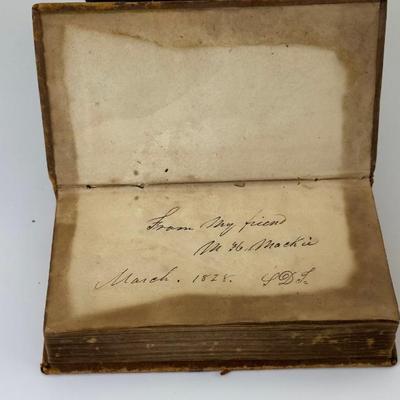 From My friend
M H. Mackie
March. 1828. SDS.